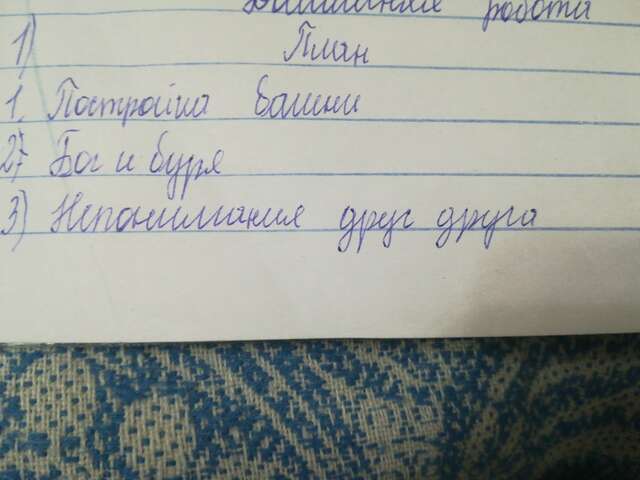 Домашняя работа
1) План
1. Постройка башни
2) Бог и буря
3) Непонимания друг друга